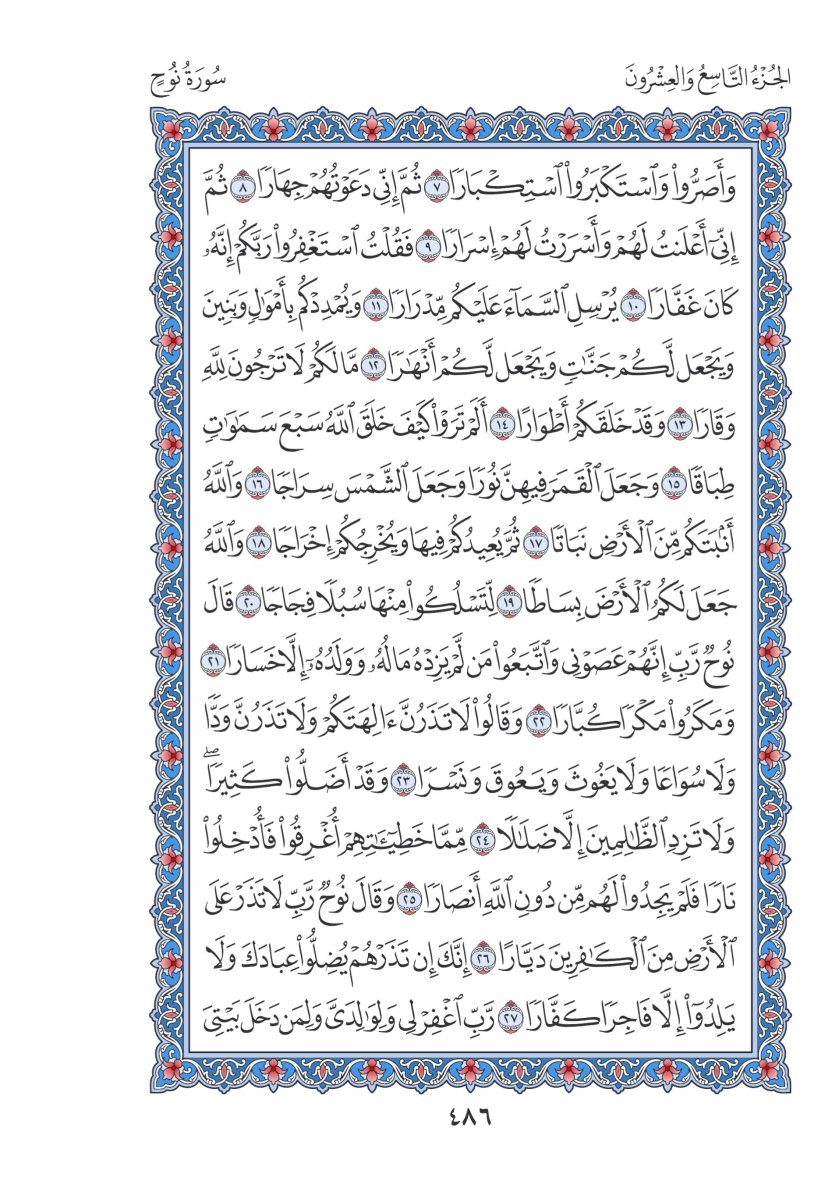 الجُزْءُ التَّاسِعُ وَالعِشْرُونَ
سُورَةُ نُوحٍ
وَأَصَرُّواْ وَٱسۡتَكۡبَرُواْ ٱسۡتِكۡبَارٗا ٧ ثُمَّ إِنِّي دَعَوۡتُهُمۡ جِهَارٗا ٨ ثُمَّ
إِنِّيٓ أَعۡلَنتُ لَهُمۡ وَأَسۡرَرۡتُ لَهُمۡ إِسۡرَارٗا ٩ فَقُلۡتُ ٱسۡتَغۡفِرُواْ رَبَّكُمۡ إِنَّهُۥ
كَانَ غَفَّارٗا ١٠ يُرۡسِلِ ٱلسَّمَآءَ عَلَيۡكُم مِّدۡرَارٗا ١١ وَيُمۡدِدۡكُم بِأَمۡوَٰلٖ وَبَنِينَ
وَيَجۡعَل لَّكُمۡ جَنَّٰتٖ وَيَجۡعَل لَّكُمۡ أَنۡهَٰرٗا ١٢ مَّا لَكُمۡ لَا تَرۡجُونَ لِلَّهِ
وَقَارٗا ١٣ وَقَدۡ خَلَقَكُمۡ أَطۡوَارًا ١٤ أَلَمۡ تَرَوۡاْ كَيۡفَ خَلَقَ ٱللَّهُ سَبۡعَ سَمَٰوَٰتٖ
طِبَاقٗا ١٥ وَجَعَلَ ٱلۡقَمَرَ فِيهِنَّ نُورٗا وَجَعَلَ ٱلشَّمۡسَ سِرَاجٗا ١٦ وَٱللَّهُ
أَنۢبَتَكُم مِّنَ ٱلۡأَرۡضِ نَبَاتٗا ١٧ ثُمَّ يُعِيدُكُمۡ فِيهَا وَيُخۡرِجُكُمۡ إِخۡرَاجٗا ١٨ وَٱللَّهُ
جَعَلَ لَكُمُ ٱلۡأَرۡضَ بِسَاطٗا ١٩ لِّتَسۡلُكُواْ مِنۡهَا سُبُلٗا فِجَاجٗا ٢٠ قَالَ
نُوحٞ رَّبِّ إِنَّهُمۡ عَصَوۡنِي وَٱتَّبَعُواْ مَن لَّمۡ يَزِدۡهُ مَالُهُۥ وَوَلَدُهُۥٓ إِلَّا خَسَارٗا ٢١
وَمَكَرُواْ مَكۡرٗا كُبَّارٗا ٢٢ وَقَالُواْ لَا تَذَرُنَّ ءَالِهَتَكُمۡ وَلَا تَذَرُنَّ وَدّٗا
وَلَا سُوَاعٗا وَلَا يَغُوثَ وَيَعُوقَ وَنَسۡرٗا ٢٣ وَقَدۡ أَضَلُّواْ كَثِيرٗاۖ
وَلَا تَزِدِ ٱلظَّٰلِمِينَ إِلَّا ضَلَٰلٗا ٢٤ مِّمَّا خَطِيٓـَٰٔتِهِمۡ أُغۡرِقُواْ فَأُدۡخِلُواْ
نَارٗا فَلَمۡ يَجِدُواْ لَهُم مِّن دُونِ ٱللَّهِ أَنصَارٗا ٢٥ وَقَالَ نُوحٞ رَّبِّ لَا تَذَرۡ عَلَى
ٱلۡأَرۡضِ مِنَ ٱلۡكَٰفِرِينَ دَيَّارًا ٢٦ إِنَّكَ إِن تَذَرۡهُمۡ يُضِلُّواْ عِبَادَكَ وَلَا
يَلِدُوٓاْ إِلَّا فَاجِرٗا كَفَّارٗا ٢٧ رَّبِّ ٱغۡفِرۡ لِي وَلِوَٰلِدَيَّ وَلِمَن دَخَلَ بَيۡتِيَ
٤٨٦